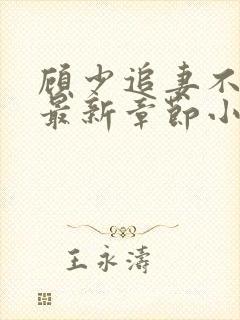 顾少追妻不
最新章节小
王永涛